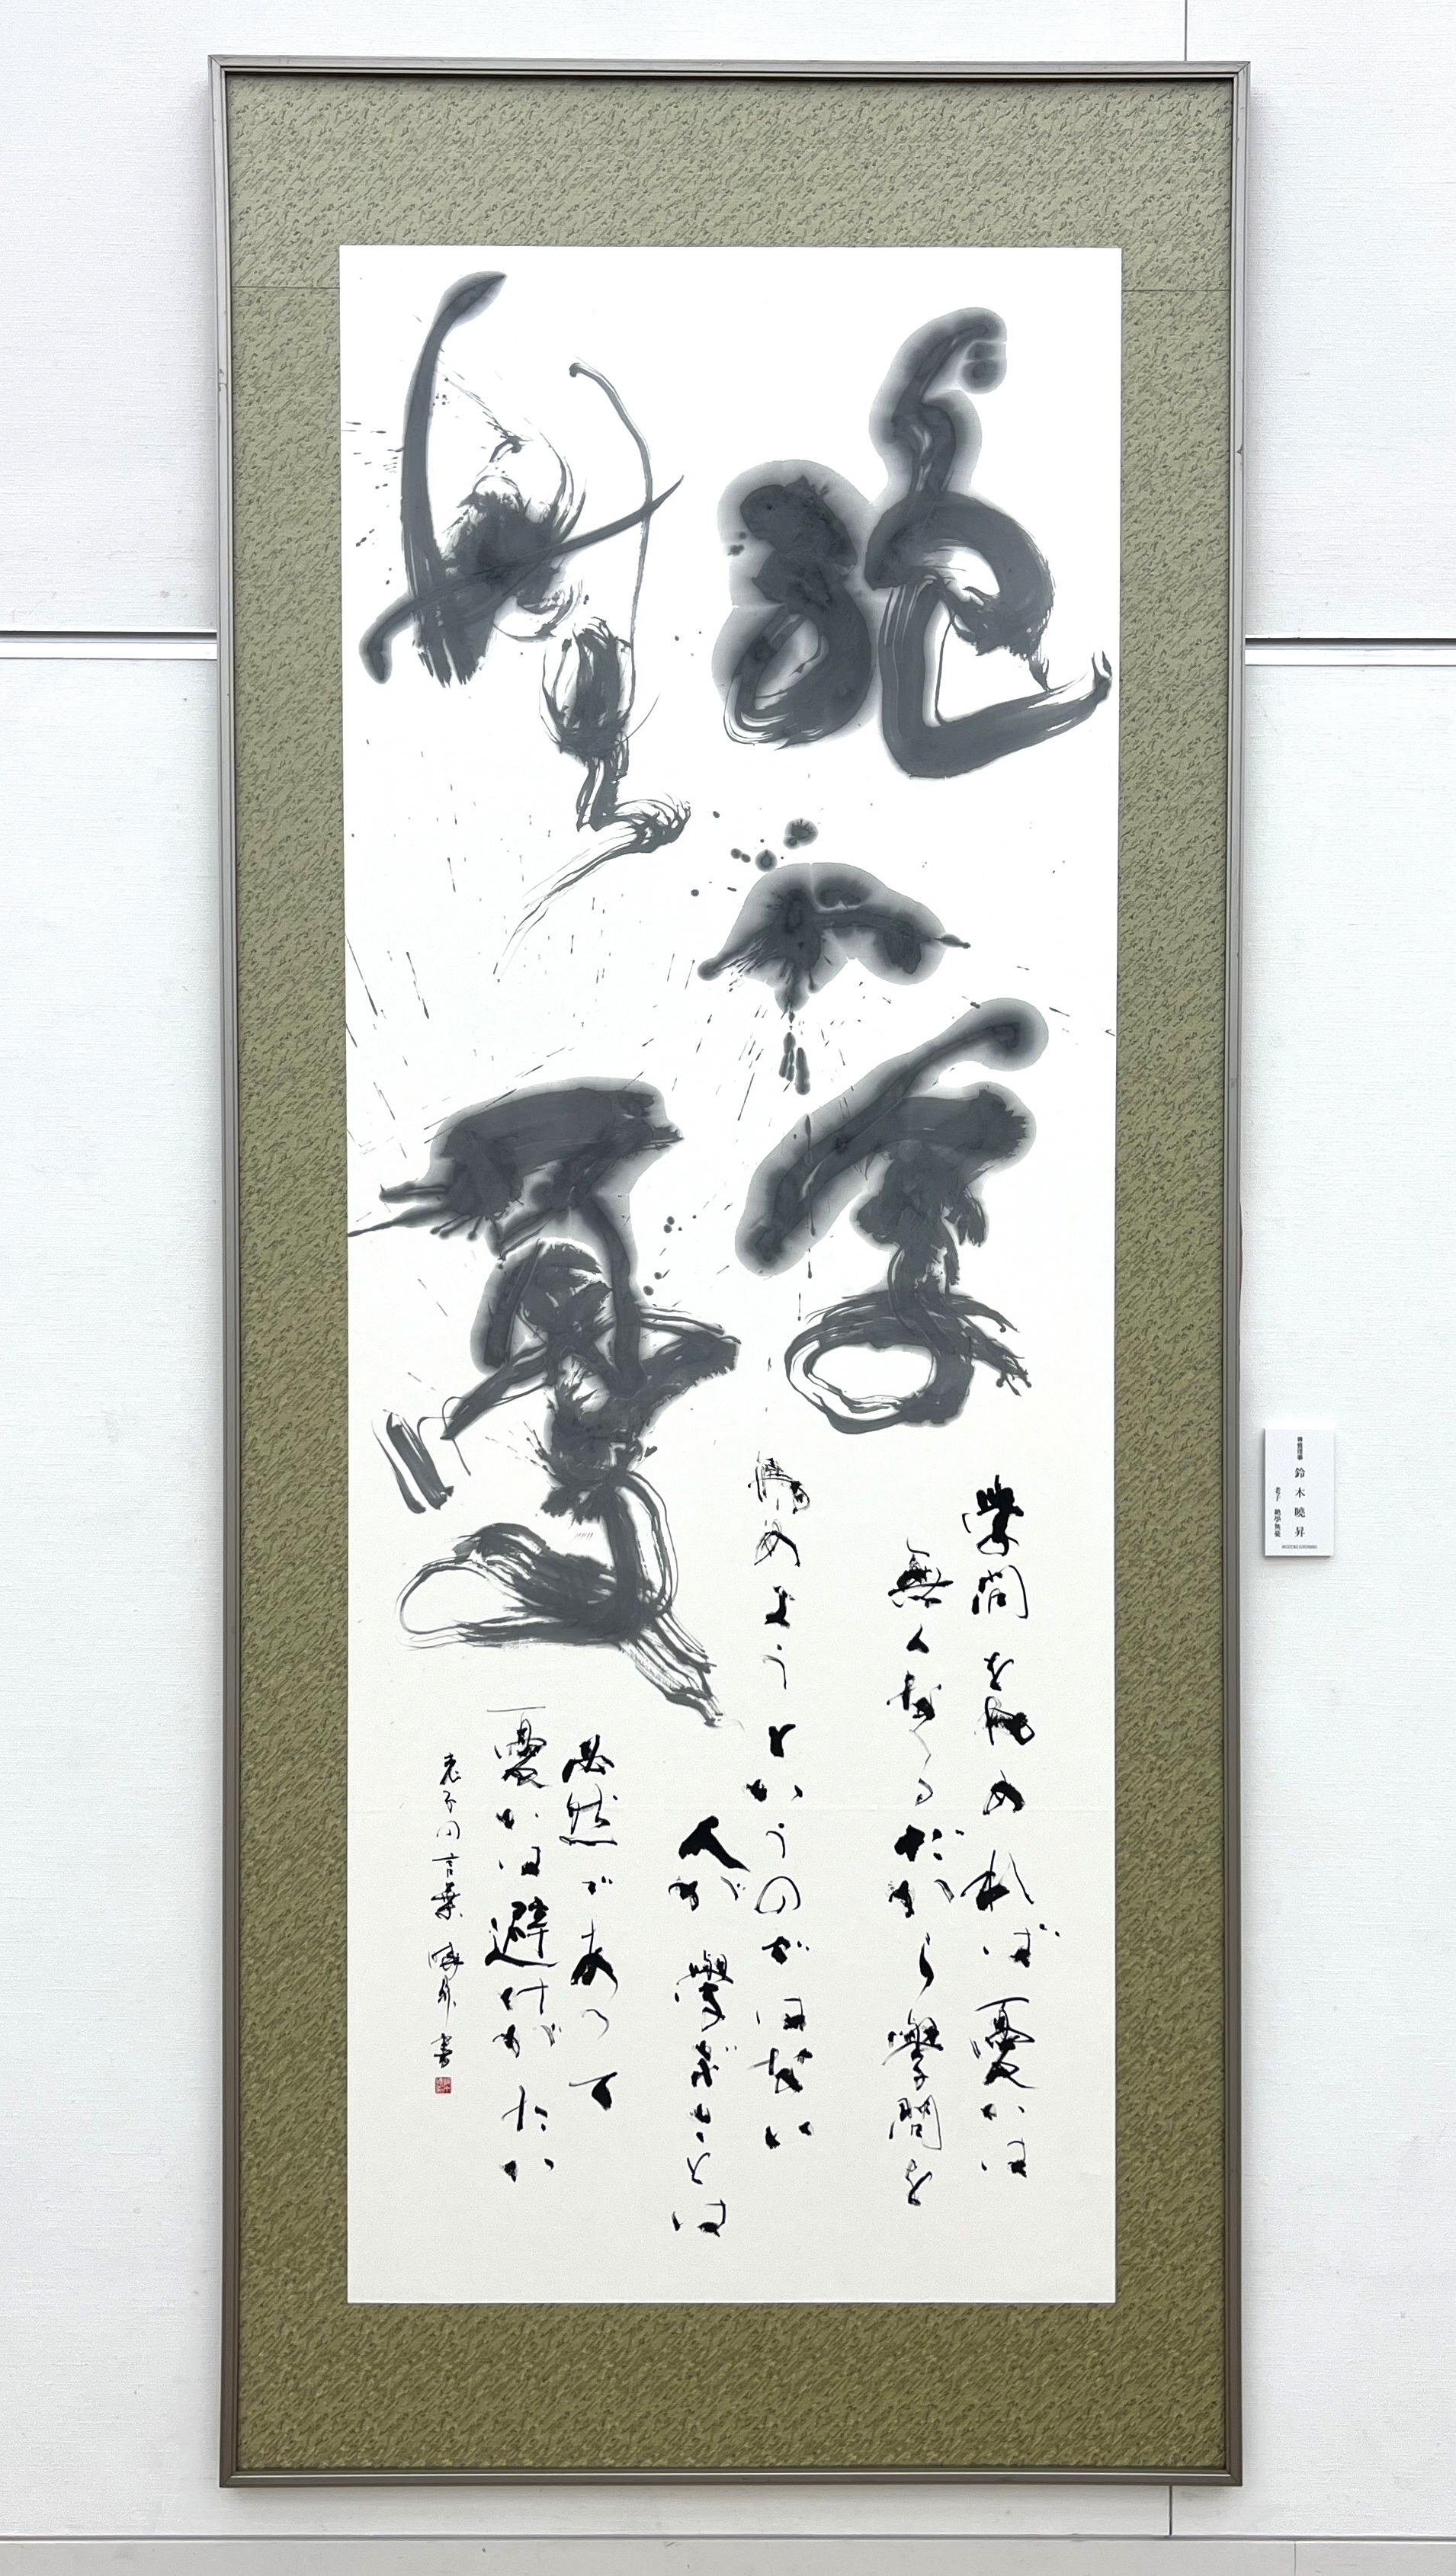 絶學
無憂
学問をめれば憂いは
無くなるだから學問を
めようというのではない
人が學ぶことは
必然であって
憂いは避けがたい
老子の言葉 暁昇書
鈴木曉昇
老子 絶學無憂